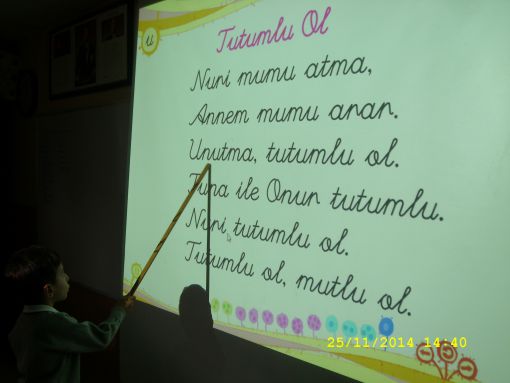 u
Tutumlu Ol
Nuri mumu atma,
Annem mumu arar.
Unutma, tutumlu ol.
Tuna ile Onur tutumlu.
Nuri tutumlu ol.
Tutumlu ol, mutlu ol.
25/11/2014 14:40